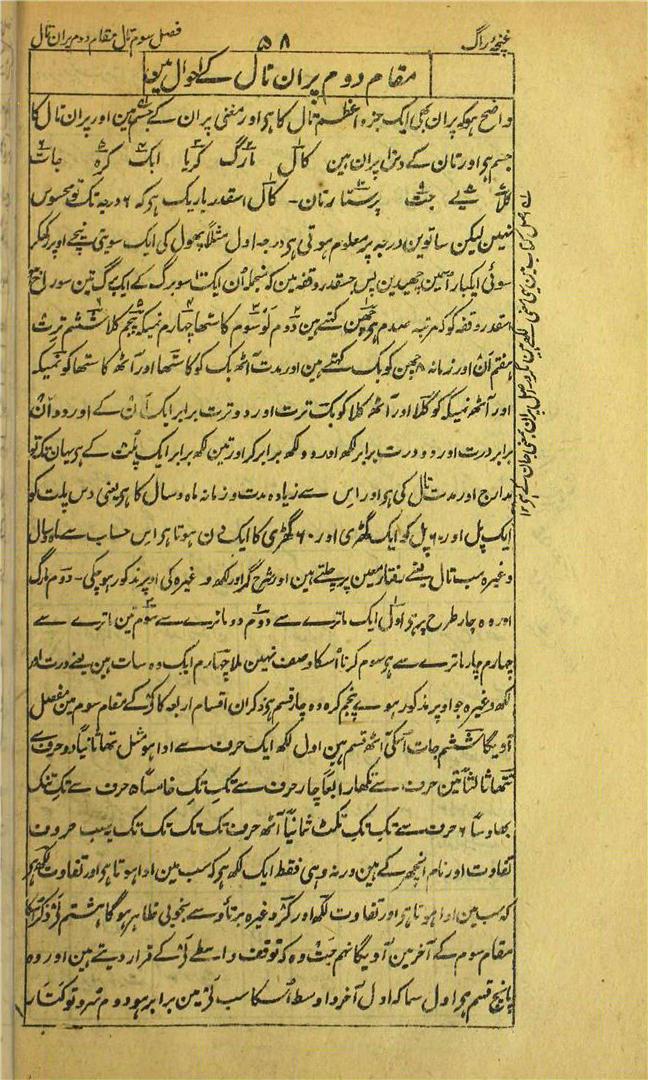 غنچۂ راگ
۵۸
فصل سوم تال مقام دوم پران تال
مقام دوم پران تال کے احوال مین
واضح ہو کہ پران بھی ایک جزو اعظم تال کا ہی اور معنی پران کے جسم ہین اور پران تال کا
جسم ہی اور تان کے دس پران ہین کال مارگ کریا انک گرہ جات
کلا لے جت پرستار تان۔ کال اسقدر باریک ہی کہ ۶ درجہ تک تو محسوس
نہین لیکن ساتوین درجہ پر معلوم ہوتی ہی درجہ اول مثلاً پھول کی ایک سوئی نیچے اوپر رکھکر
سوئی ایکبار آسمین چھیدین پس جسقدر وقفہ مین کہ منجملہ اُن ایک سو برگ کے ایک برگ مین سوراخ
اسقدر وقفہ کو کہ مرتبہ صدم ہی چھن کہتے ہین دوم لَو سوم کاستھا چہارم نمیکہ پنجم کلا ششم ترت
ہفتم اُن اور زمانہ ۸ چھن کو بک کہتے ہین اور مدت آٹھ بک کو کاستھا اور آٹھ کاستھا کو نمیکہ
اور آٹھ نمیکہ کو کلا اور آٹھ کلا کو بک ترت اور دو ترت برابر ایک اُن کے اور دو اُن
برابر درت اور دو درت برابر لکھ اور دو لکھ برابر گر اور تین لکھ برابر ایک پلت کے ہی یہان تک تو
مدارج اور مدت تال کی ہی اور اس سے زیادہ مدت و زمانہ ماہ و سال کا ہی یعنی دس پلت کو
ایک پل اور ۶۰ پل کو ایک گھڑی اور ۶۰ گھڑی کا ایک دن ہوتا ہی اس حساب سے ماہ و سال
وغیرہ سب تال یعنے رفتار معین پر چلتے ہین اور شرح گر اور لکھ وغیرہ کی اوپر مذکور ہو چکی۔ دوم مارگ
اور وہ چار طرح پر ہی اول ایک ماترے سے دوم دو ماترے سے سوم تین ماترے سے
چہارم چار ماترے سے ہی سوم کرنا اُسکا وصف نہین ملا چہارم ایک وہ سات ہین یعنے درت اور
لکھ وغیرہ جو اوپر مذکور ہوے پنجم گرہ وہ چار قسم ہی ذکر ان اقسام اربعہ کا گرہ کے مقام سوم مین مفصل
آویگا ششم جات اُسکی آٹھ قسم ہین اول لکھ ایک حرف سے ادا ہو مثل تھا ثانیاً دو حرف سے
تتھا ثالثاً تین حرف سے تکھا رابعاً چار حرف سے تک تک خامساً ۵ حرف سے تک تک
سادساً ۶ حرف سے تک تک تکٹ ثمانیاً آٹھ حرف تک تک تک تک یہ سب حروف
تفاوت اور نام انچھر کے ہین ورنہ وہی فقط ایک لکھ ہی کہ سب مین ادا ہوتا ہی اور تفاوت لکھ ہی
کہ سب مین ادا ہوتا ہی اور تفاوت لکھ اور گر وغیرہ برتاو سے بخوبی ظاہر ہوگا ہشتم لَے ذکر اسکا
مقام سوم کے آخر مین آویگا نہم جت وہ کہ توقف واسطے لَے کے قرار دیتے ہین اور وہ
پانچ قسم ہی اول سما کہ اول آخر و اوسط اُسکا سب لَے مین برابر ہو دوم سروتوگتا